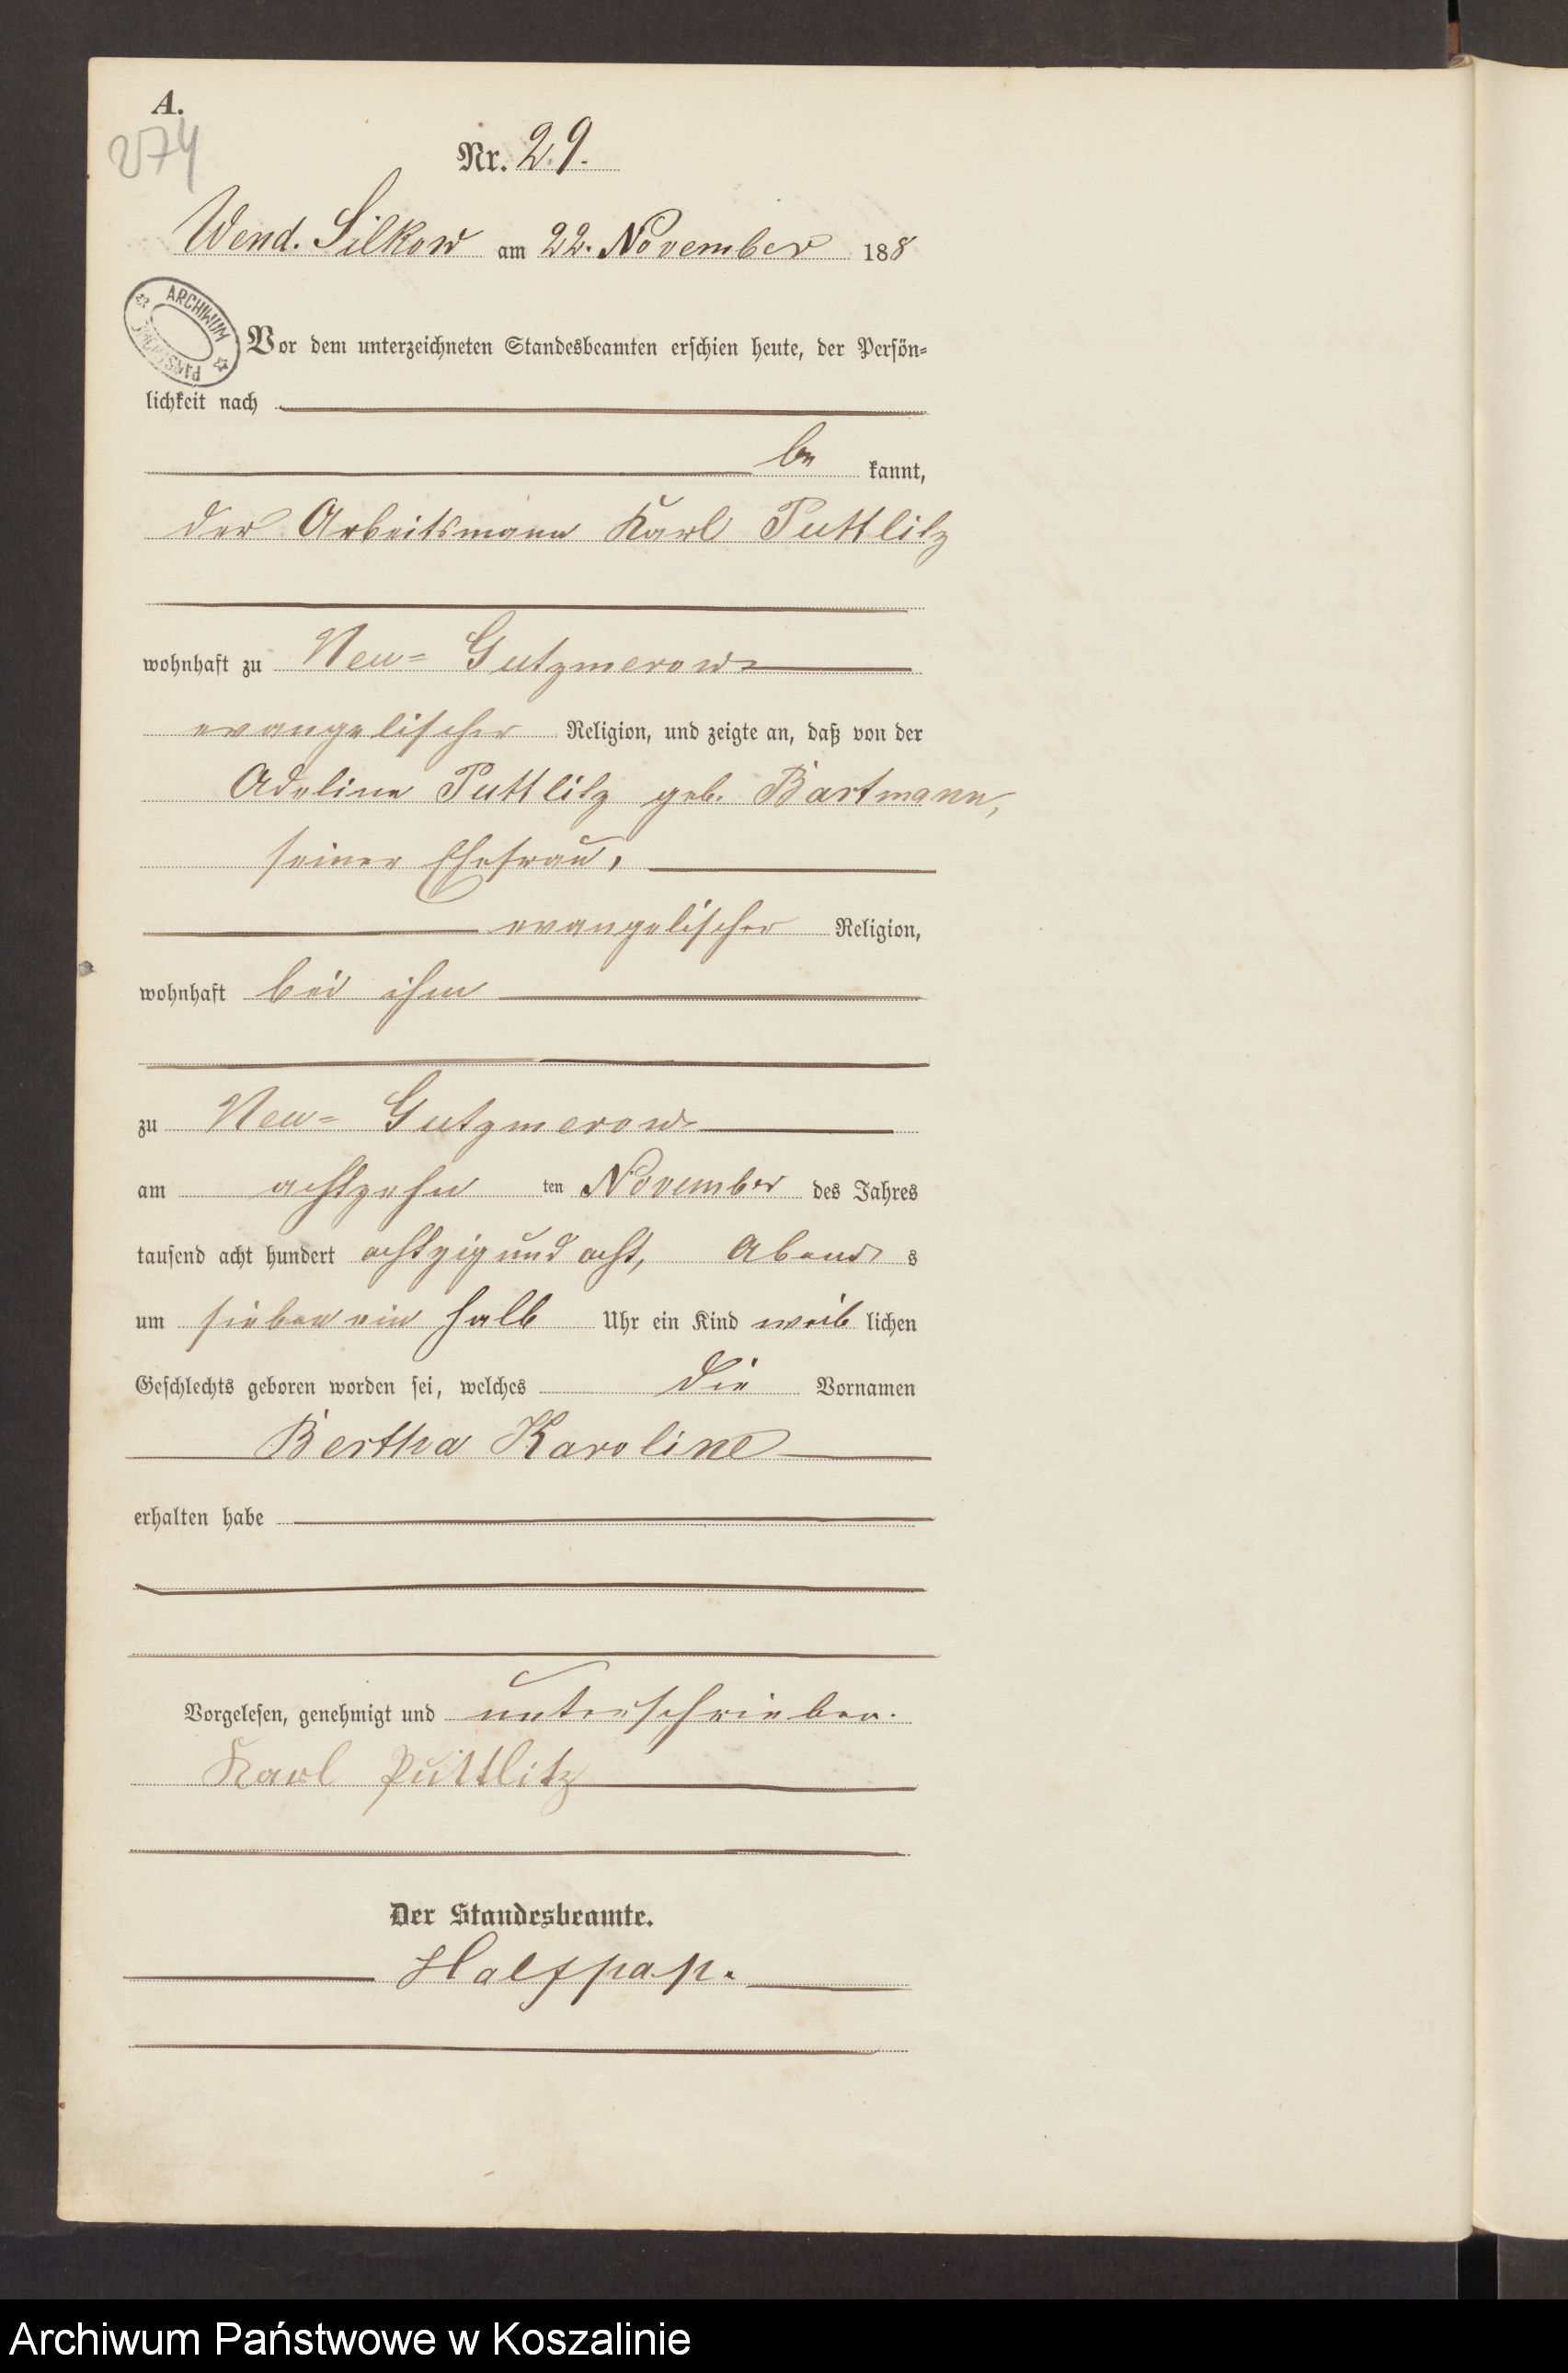 A.
274
Nr. 29.
Wend. Silkow am 22. November 1888
ARCHIWUM PAŃSTWOWE
Vor dem unterzeichneten Standesbeamten erschien heute, der Persön-
lichkeit nach
be kannt,
der Arbeitsmann Karl Puttlitz
wohnhaft zu Neu- Gutzmerow
evangelischer Religion, und zeigte an, daß von der
Adeline Puttlitz geb. Bartmann,
seiner Ehefrau,
evangelischer Religion,
wohnhaft bei ihm
zu Neu- Gutzmerow
am achtzehn ten November des Jahres
tausend acht hundert achtzig und acht, Abend s
um sieben ein halb Uhr ein Kind weib lichen
Geschlechts geboren worden sei, welches die Vornamen
Bertha Karoline
erhalten habe
Vorgelesen, genehmigt und unterschrieben.
Karl Puttlitz
Der Standesbeamte.
Halfpap.
Archiwum Państwowe w Koszalinie